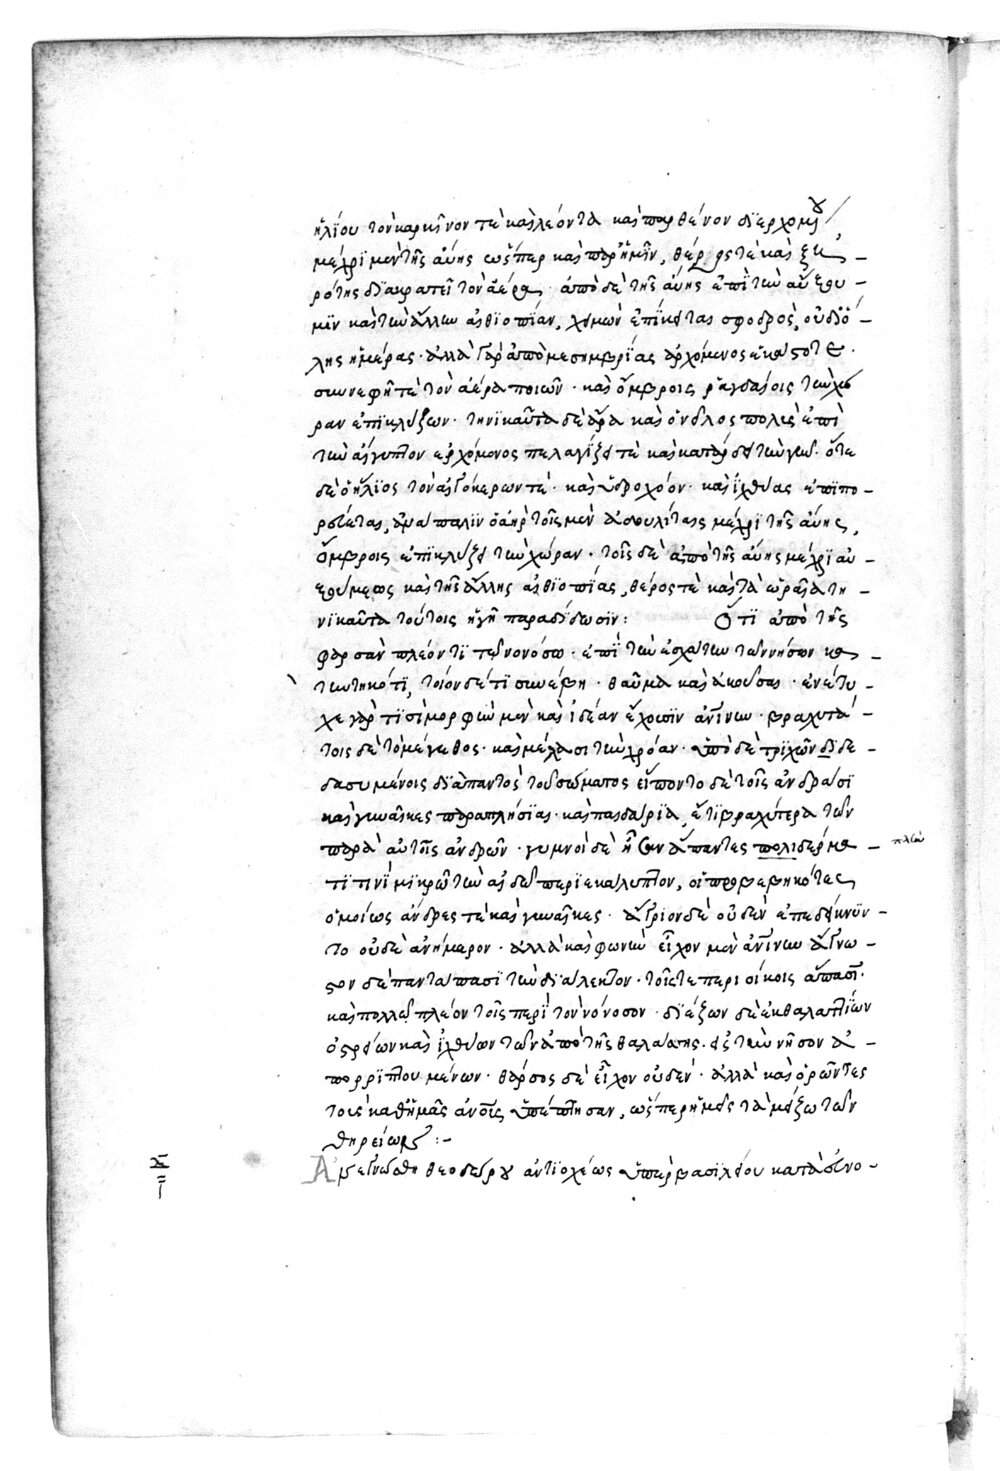 ἡλίου τὸν καρκῖνον τὲ καὶ λέοντα καὶ παρθένον διερχομ(έν)ου
μέχρι μὲν τῆς αὔης ὥσπερ καὶ παρ' ἡμῖν, θέρος τὲ καὶ ξη –
ρότης διακρατεῖ τὸν ἀέρα· ἀπὸ δὲ τῆς αὔης ἐπὶ τὴν αὔξου –
μιν καὶ τὴν ἄλλην αἰθιοπίαν, χειμὼν ἐπίκειται σφοδρὸς, οὐ δι' ὅ –
λης ἡμέρας· ἀλλὰ γὰρ ἀπὸ μεσημβρίας ἀρχόμενος ἑκάστοτε·
συννεφῆ τὲ τὸν ἀέρα ποιῶν· καὶ ὄμβροις ῥαγδαίοις τὴν χώ
ραν ἐπικλύζων· τηνικαῦτα δὲ ἄρα καὶ ὁ νεῖλος πολὺς ἐπὶ
τὴν αἴγυπτον ἐρχόμενος πελαγίζει τὲ καὶ κατάρδει τὴν γῆν· ὅτε
δὲ ὁ ἥλιος τὸν αἰγόκερων τὲ· καὶ ὑδροχόον· καὶ ἰχθύας ἐπιπο –
ρεύεται, ἅμα πάλιν ὁ ἀὴρ τοῖς μὲν ἀδουλίταις μέχρι τῆς αὔης,
ὄμβροις ἐπικλύζει τὴν χώραν· τοῖς δὲ ἀπὸ τῆς αὔης μέχρι αὐ
ξούμεως καὶ τῆς ἄλλης αἰθιοπίας, θέρος τὲ καὶ τὰ ὡραῖα τη –
νικαῦτα τούτοις ἡ γῆ παραδίδωσιν: Ὅτι ἀπὸ τῆς
φαρσὰν πλέοντι τῷ νονόσῳ· ἐπὶ τὴν ἐσχάτην τῶν νήσων κα –
τηντηκότι, τοιόνδέ τι συνέβη· θαῦμα καὶ ἀκοῦσαι· ἐνέτυ –
χε γάρ τισὶ μορφὴν μὲν καὶ ἰδέαν ἔχουσιν ἀν(θρωπ)ίνην· βραχυτά –
τοις δὲ τὸ μέγεθος· καὶ μέλασι τὴν χρόαν· ὑπὸ δὲ τριχῶν διδε –
δασυμένοις διὰ παντὸς τοῦ σώματος εἵποντο δὲ τοῖς ἀνδράσι
καὶ γυναῖκες παραπλήσιαι· καὶ παιδάρια, ἔτι βραχύτερα τῶν
παρὰ αὐτοῖς ἀνδρῶν· γυμνοὶ δὲ ἦσαν ἅπαντες πολιδέρμα –
τι τινὶ μικρῷ τὴν αἰδῶ περιεκαλύπτον, οἱ προβεβηκότες
ὁμοίως ἄνδρες τὲ καὶ γυναῖκες· ἄγριον δὲ οὐδὲν ἐπεδείκνυν –
το οὐδὲ ἀνήμερον· ἀλλὰ καὶ φωνὴν εἶχον μὲν ἀν(θρωπ)ίνην ἄγνω –
στον δὲ παντάπασι τὴν διάλεκτον· τοῖς τε περιοίκοις ἅπασι·
καὶ πολλῷ πλέον τοῖς περὶ τὸν νόνοσον· διέζων δὲ ἐκ θαλαττίων
ὀστρείων καὶ ἰχθύων τῶν ἀπὸ τῆς θαλάσσης εἰς τὴν νῆσον ἀ –
πορριπτουμένων· θάρσος δὲ εἶχον οὐδέν· ἀλλὰ καὶ ὁρῶντες
τοὺς καθ' ἡμᾶς ἀν(θρώπ)ους ὑπέπτησαν, ὥσπερ ἡμεῖς τὰ μείζω τῶν
θηρείων: –
Ἀνεγνώσθη θεοδώρου ἀντιοχέως ὑπὲρ βασιλείου κατὰ εὐνο –
πλὴν